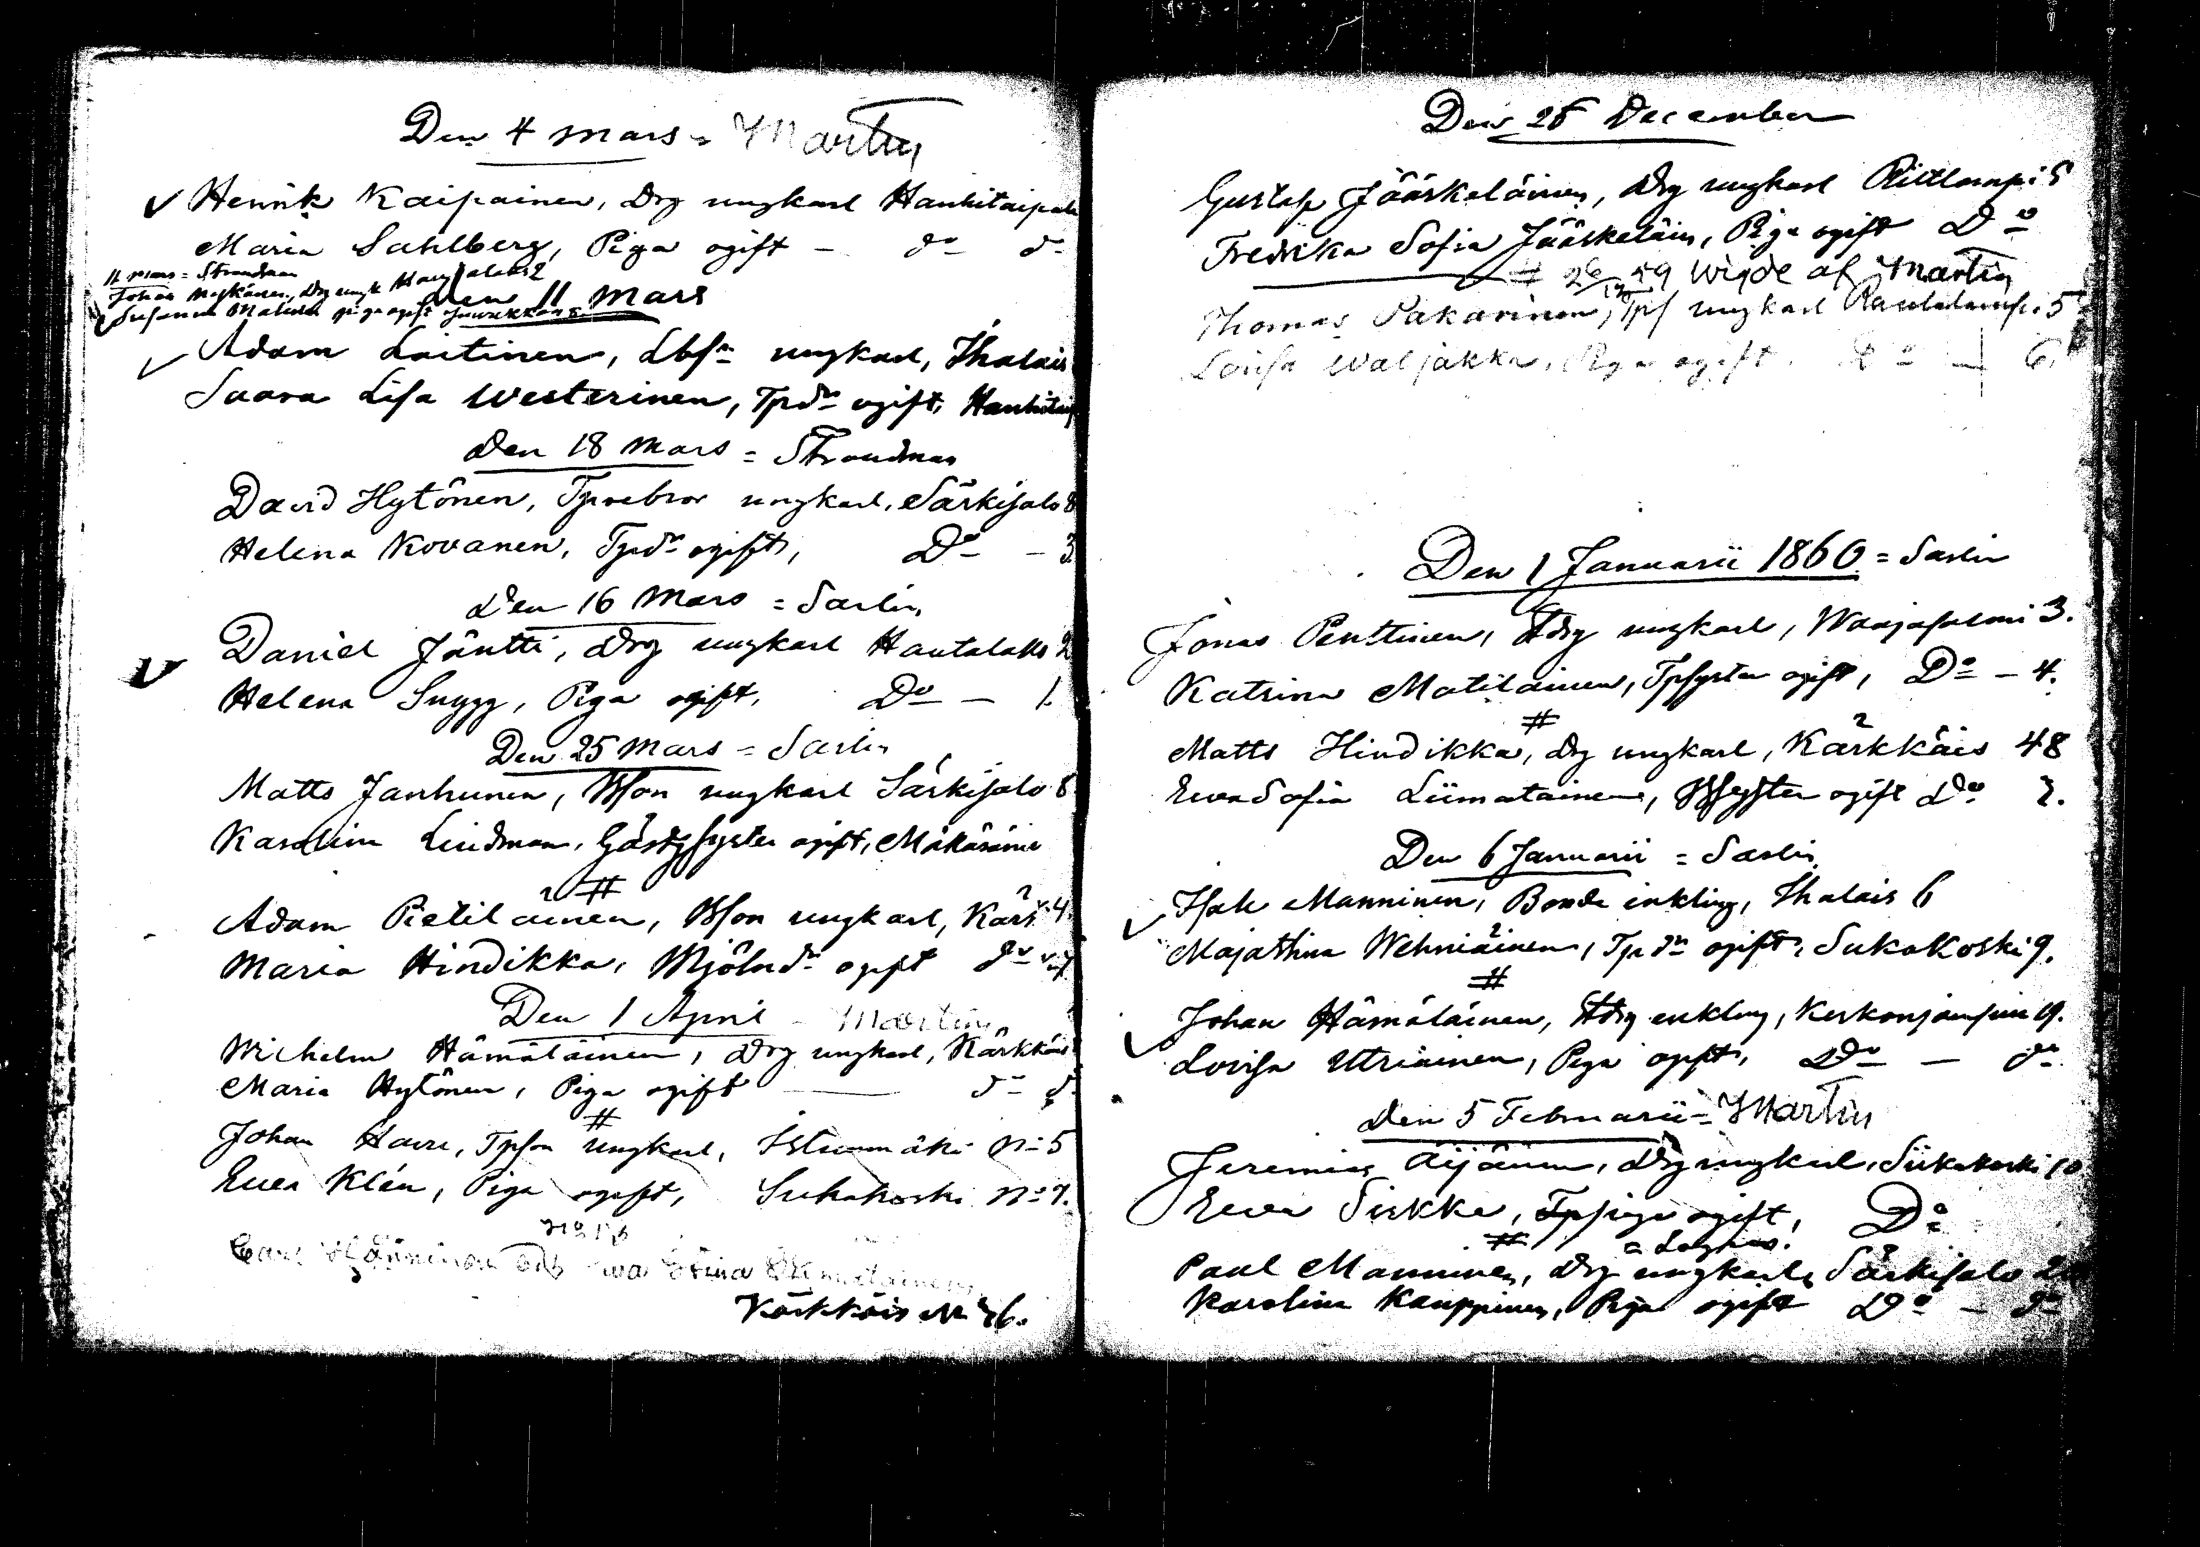 Den 4 Mars = Martin
Henrik Kaipainen, Drg ungkarl Hankitaipale
Maria Sahlberg, Piga ogift - do do
11 Mars = Strandman
Johan Drg ungk Hauta laks 2
Susanna piga ogift
Den 11 Mars
Adam Laitinen, Lbsn ungkarl, Ihalais
Saara Lisa Westerinen, Tpdr ogift, Hankitaip
Den 18 Mars = Strandman
David Hytönen, Tparebror ungkarl, Särkisalo 8
Helena Kovanen, Tpdr ogift, Do - 3
Den 16 Mars = Sarlin
Daniel Jäntti, Drg ungkarl Hautalaks 2
Helena Snygg, Piga ogift, Do - 1.
Den 25 Mars = Sarlin
Matts Janhunen, Bson ungkarl Särkisalo 8
Karolina Lindman, Gästgsyster ogift,
#
Adam Pietiläinen, Bson ungkarl, Kärk 4
Maria Hindikka, Mjölnd ogift do
Den 1 April - Martin
Wilhelm Hämäläinen, Drg ungkarl, Kärkkäis
Maria Hytönen, Piga ogift — do d
#
Johan Havu, Tpson ungkarl, Istunmäki No 5
Eva Klén, Piga ogift, Sukakoski No 7.
Carl Manninen och Eva Stina Liimatainen
Kärkkäis No 46.
Den 26 December
Gustaf Jääskeläinen, Drg ungkarl Riitlampi 5
Fredrika Sofia Jääskeläin, Piga ogift Do
# 26/12 59 wigde af Martin
Thomas Pakarinen, Tps ungkarl Rautalampi. 5
Lovisa Waljakka, Piga ogift. Do - 6.
Den 1 Januarii 1860 = Sarlin
Jonas Penttinen, Drg ungkarl, Waajasalmi 3.
Katrina Matilainen, Tpsyster ogift, Do - 4.
#
Matts Hindikka, Drg ungkarl, Kärkkäis 48
Eva Sofia Liimatainen, Bsyster ogift Do 2.
Den 6 Januarii = Sarlin
Isak Manninen, Bonde enkling, Ihalais 6
Maja Stina Wehniäinen, Tpdr ogift, Sukakoski 9.
#
Johan Hämäläinen, Drg enkling, Kerkonjoensuu 19.
Lovisa Utriainen, Piga ogift, Do - do
Den 5 Februarii = Martin
Jeremias Äijänen, Drg ungkarl, Siikakoski 10
Eva Sirkka, piga ogift, Do
#
Paul Manninen, Drg ungkarl, Särkisalo 2
Karolina Kauppinen, Piga ogift Do - do